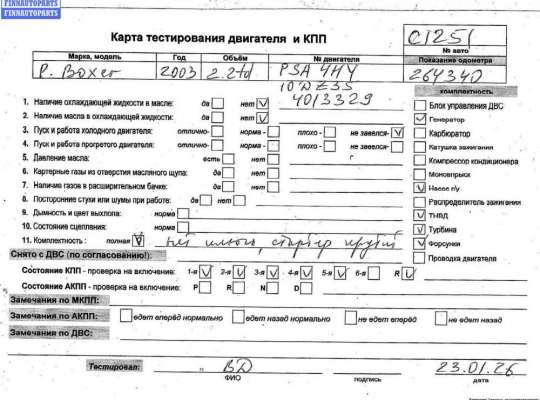 FINNAUTOPARTS
FINNAUTOPARTS
Карта тестирования двигателя и КПП
C1251
№ авто
Марка, модель Год Объём № двигателя Показание одометра
P. Boxer 2003 2.2td PSA 4HY 264340
10DZ35
4013329
комплектность
1. Наличие охлаждающей жидкости в масле: да нет V
2. Наличие масла в охлаждающей жидкости: да нет V
3. Пуск и работа холодного двигателя: отлично- норма - плохо - не завелся- V
4. Пуск и работа прогретого двигателя: отлично- норма - плохо - не завелся-
5. Давление масла: есть нет г
6. Картерные газы из отверстия масляного щупа: да нет
7. Наличие газов в расширительном бачке: да нет
8. Посторонние стуки или шумы при работе: да нет
9. Дымность и цвет выхлопа: норма
10. Состояние сцепления: норма
11. Комплектность : полная V нет стартер
Блок управления ДВС
Генератор
Карбюратор
Катушка зажигания
Компрессор кондиционера
Моновпрыск
Насос г/у
Распределитель зажигания
ТНВД
Турбина
Форсунки
Проводка двигателя
Снято с ДВС (по согласованию!):
Состояние КПП - проверка на включение: 1-я V 2-я V 3-я V 4-я V 5-я V 6-я R V
Состояние АКПП - проверка на включение: P R N D
Замечания по МКПП:
Замечания по АКПП: едет вперёд нормально едет назад нормально не едет вперёд не едет назад
Замечания по ДВС:
Тестировал: ВД 23.01.26
ФИО подпись дата